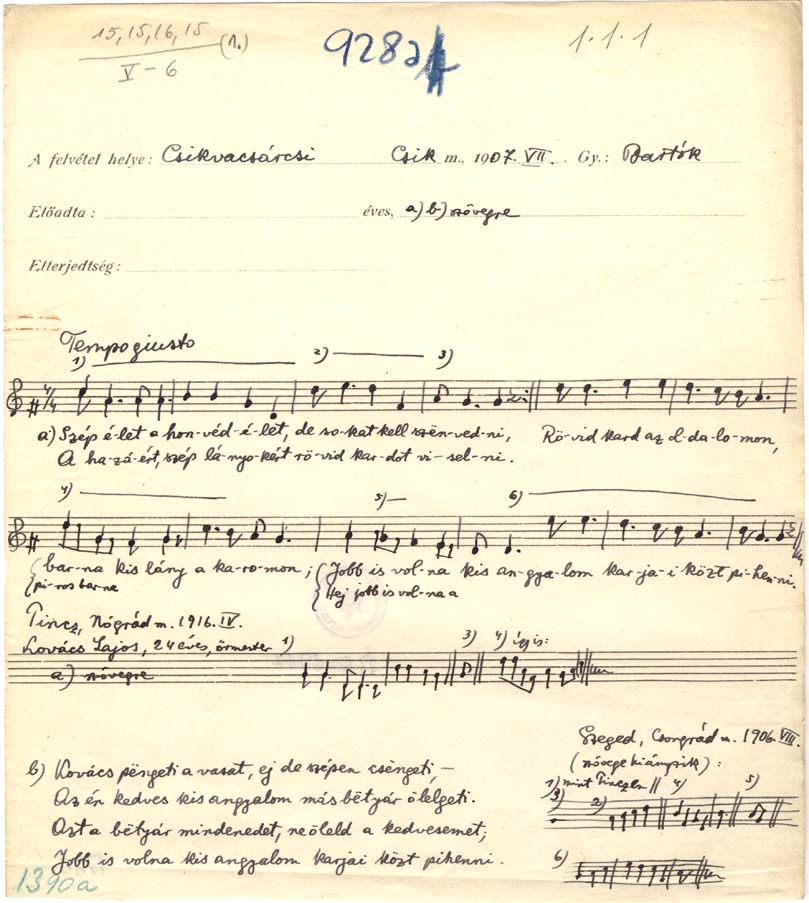 15, 15, 16, 15 (1.)
V – 6
928a
1·1·1
A felvétel helye: Csikvacsárcsi Csik m., 1907. VII. Gy.: Bartók
Előadta: éves, a) b) szövegre
Elterjedtség:
Tempo giusto
1) 2) 3)
4/4
a) Szép é-let a hon-véd-é-let, de so-kat kell szën-ved-ni, Rö-vid kard az ol-da-lo-mon,
A ha-zá-ért, szép lá-nyo-kért rö-vid kar-dot vi-sel-ni.
4) 5) 6)
bar-na kis lány a ka-ro-mon; Jobb is vol-na kis an-gya-lom kar-ja-i közt pi-hen-ni.
pi-ros bar-na Hej jobb is vol-na a
Tincz, Nógrád m. 1916. IV.
Kovács Lajos, 24 éves, őrmester 1) 3) 4) így is:
a) szövegre
Szeged, Csongrád m. 1906. VIII.
(szövege hiányzik):
b) Kovács pëngeti a vasat, ej de szépen csëngeti, –
1) mint Tinczen 4) 5)
3) 2)
Az én kedves kis angyalom más bëtyár ölelgeti.
Azt a bëtyár mindenedet, ne öleld a kedvesemet;
Jobb is volna kis angyalom karjai közt pihenni.
6)
1390a